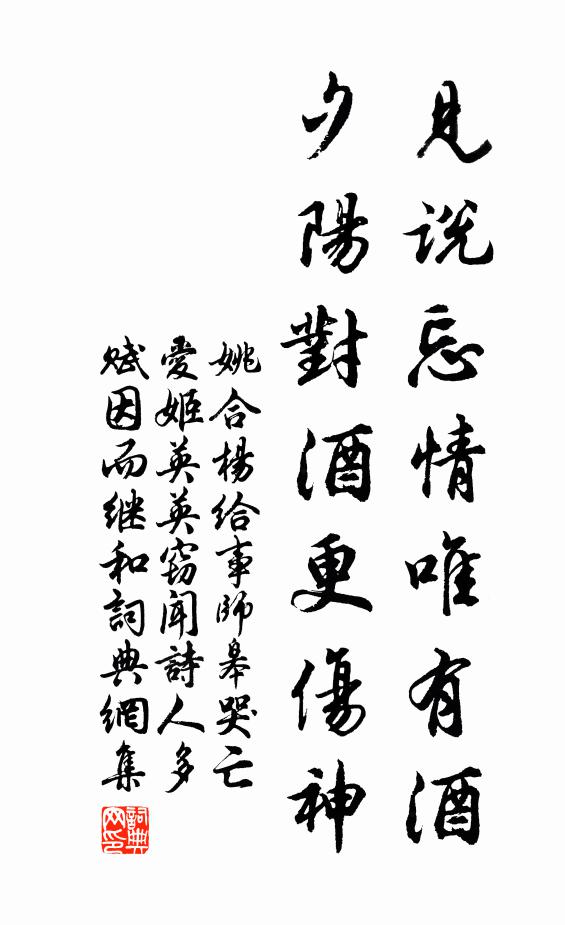 見説忘情唯有酒
夕陽對酒更傷神
姚合楊給事師皋哭亡
愛姬英英竊聞詩人多
賦因而继和詞典網集
詞典網印